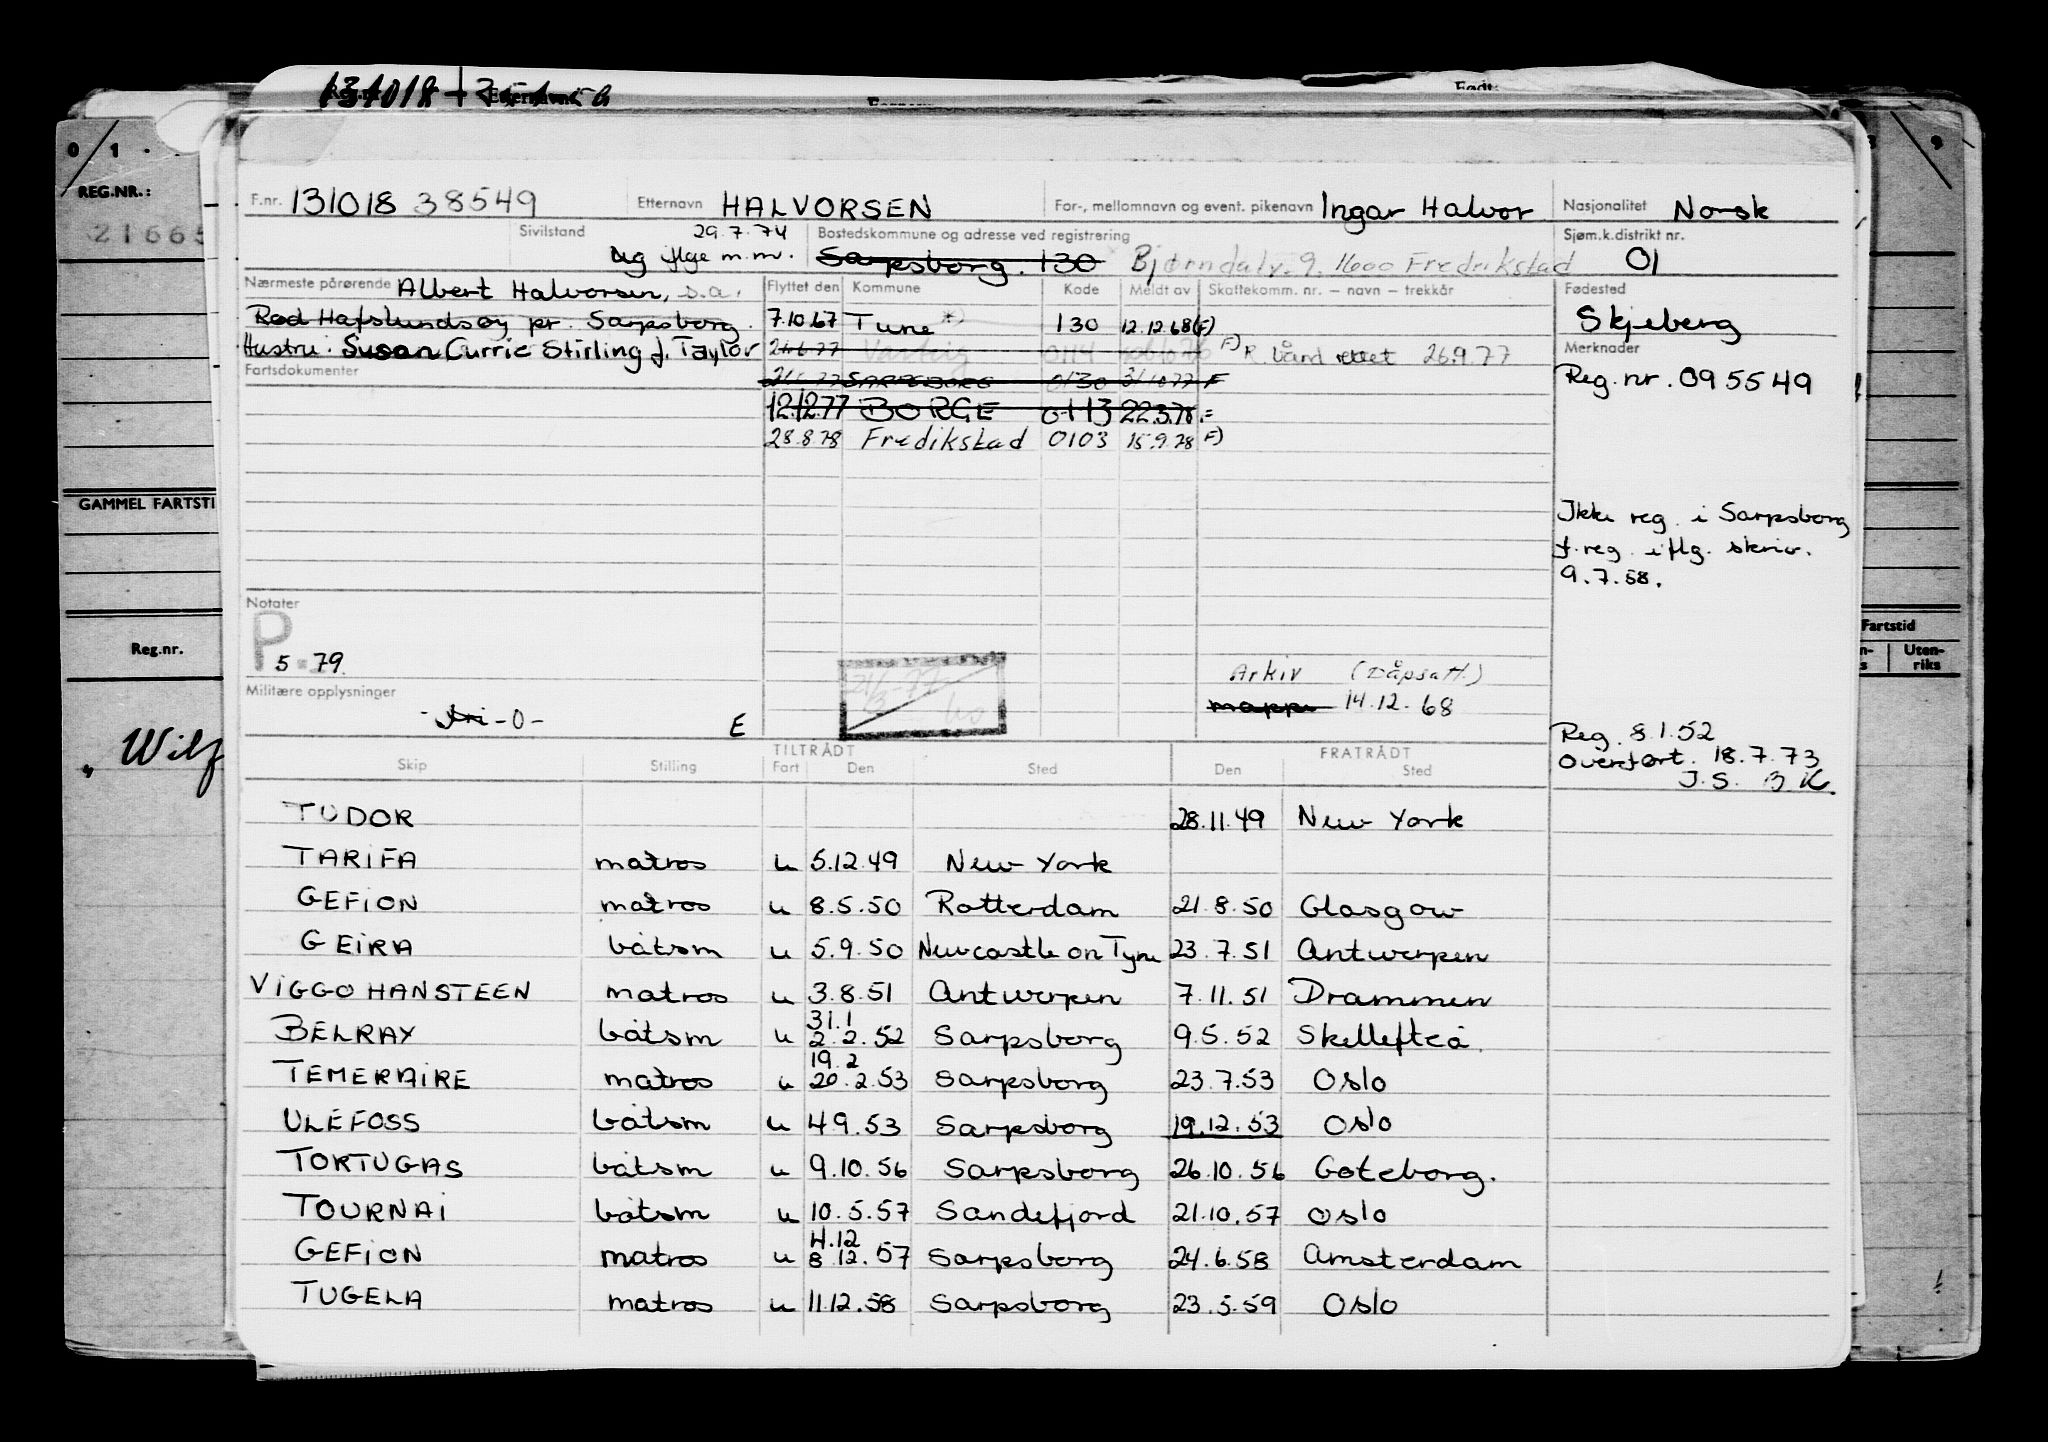 131018
Etternavn
Født:
0 1
REG.NR.:
21665
GAMMEL FARTSTI
Reg.nr.
" Wilf
9
Fartstid
Uten-
riks
F.nr. 131018 38549 Etternavn HALVORSEN For-, mellomnavn og event. pikenavn Ingar Halvor Nasjonalitet Norsk
Sivilstand 29.7.74 Bostedskommune og adresse ved registrering Sjøm.k.distrikt nr.
ug iflge m.m. Sarpsborg. 130 Bjørndalv. 9. 1600 Fredrikstad 01
Nærmeste pårørende Albert Halvorsen, s.a. Flyttet den Kommune Kode Meldt av Skattekomm. nr. — navn — trekkår Fødested
Rød Hafslundsøy pr. Sarpsborg. 7.10.67 Tune *) 130 12.12.68(F) Skjeberg
Hustru: Susan Currie Stirling f. Taylor 24.6.77 Varteig 0114 F) R. 26.9.77 Merknader
Fartsdokumenter SARPSBORG 0130 31/10 77 F Reg.nr. 095549
12.12.77 BORGE 0113 22.3.78
28.8.78 Fredikstad 0103 15.9.78 F)
Ikke reg. i Sarpsborg
f.reg. iflg. skriv.
9.7.58.
Notater
P
5-79.
Arkiv (Dåpsatt.)
Militære opplysninger
mappe 14.12.68
-0- E
Reg. 8.1.52
Overført. 18.7.73
J.S. B K.
TILTRÅDT FRATRÅDT
Skip Stilling Fart Den Sted Den Sted
TUDOR 28.11.49 New York
TARIFA matros u 5.12.49 New York
GEFION matros u 8.5.50 Rotterdam 21.8.50 Glasgow
GEIRA båtsm u 5.9.50 Newcastle on Tyne 23.7.51 Antwerpen
VIGGO HANSTEEN matros u 3.8.51 Antwerpen 7.11.51 Drammen
31.1
BELRAY båtsm u 2.2.52 Sarpsborg 9.5.52 Skellefteå.
19.2
TEMERAIRE matros u 20.2.53 Sarpsborg 23.7.53 Oslo
ULEFOSS båtsm u 4.9.53 Sarpsborg 19.12.53 Oslo
TORTUGAS båtsm u 9.10.56 Sarpsborg 26.10.56 Gøteborg.
TOURNAI båtsm u 10.5.57 Sandefjord 21.10.57 Oslo
4.12
GEFION matros u 8.12.57 Sarpsborg 24.6.58 Amsterdam
TUGELA matros u 11.12.58 Sarpsborg 23.5.59 Oslo